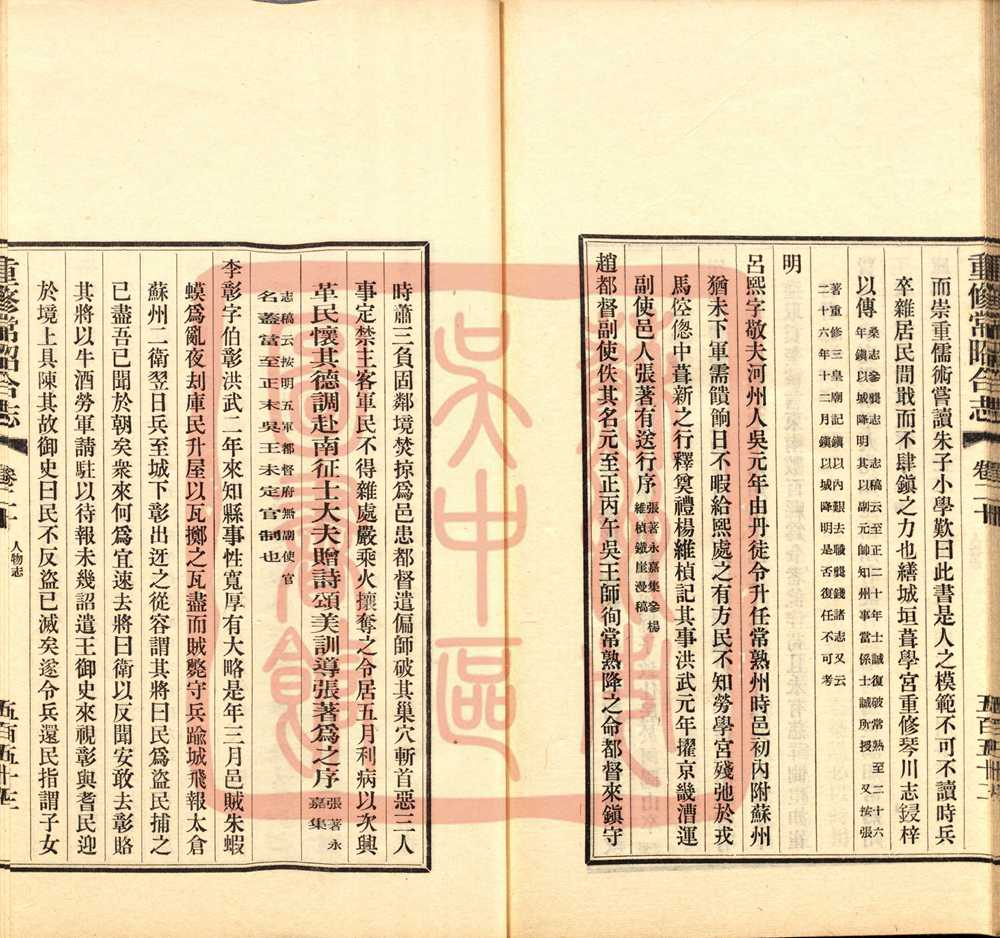 重修常昭合志
卷二十
而崇重儒術嘗讀朱子小學歎曰此書是人之模範不可不讀時兵
卒雜居民間戢而不肆鎮之力也繕城垣葺學宮重修琴川志鋟梓
以傳桑志參龔志
志稿云至正二十年士誠復破常熟至二十六
年鎮以城降明其以副元帥知州事當係士誠所授又按張
著重修三皇廟記鎮以內艱去職龔錢諸志又云
二十六年十二月鎮以城降明是否復任不可考
明
呂熙字敬夫河州人吳元年由丹徒令升任常熟州時邑初內附蘇州
猶未下軍需饋餉日不暇給熙處之有方民不知勞學宮殘弛於戎
馬倥傯中葺新之行釋奠禮楊維楨記其事洪武元年擢京畿漕運
副使邑人張著有送行序張著永嘉集參楊
維楨鐵崖漫稿
趙都督副使佚其名元至正丙午吳王師徇常熟降之命都督來鎮守
時蕭三負固鄰境焚掠爲邑患都督遣偏師破其巢穴斬首惡三人
事定禁主客軍民不得雜處嚴乘火攘奪之令居五月利病以次興
革民懷其德調赴南征士大夫贈詩頌美訓導張著爲之序張著永
嘉集
志稿云按明五軍都督府無副使官
名蓋當至正末吳王未定官制也
李彰字伯彰洪武二年來知縣事性寬厚有大略是年三月邑賊朱蝦
蟆爲亂夜刦庫民升屋以瓦擲之瓦盡而賊斃守兵踰城飛報太倉
蘇州二衛翌日兵至城下彰出迓之從容謂其將曰民爲盜民捕之
已盡吾已聞於朝矣衆來何爲宜速去將曰衛以反聞安敢去彰賂
其將以牛酒勞軍請駐以待報未幾詔遣王御史來視彰與耆民迎
於境上具陳其故御史曰民不反盜已滅矣遂令兵還民指謂子女
重修常昭合志
卷二十
人物志
五百五十三